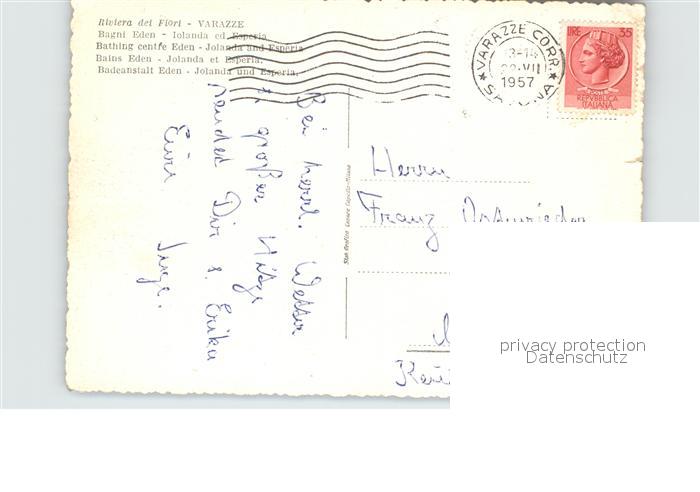 Riviera dei Fiori - VARAZZE
Bagni Eden - Iolanda ed Esperia
Bathing centre Eden - Jolanda and Esperia
Bains Eden - Jolanda et Esperia.
Badeanstalt Eden - Jolanda und Esperia.
VARAZZE CORR.
VII
1957
SAVONA
LIRE 35
REPVBBLICA
ITALIANA
Bei herrl. Wetter
u. großer Hitze
sendet Dir u. Erika
Eure Inge.
Herrn
Franz
privacy protection
Datenschutz